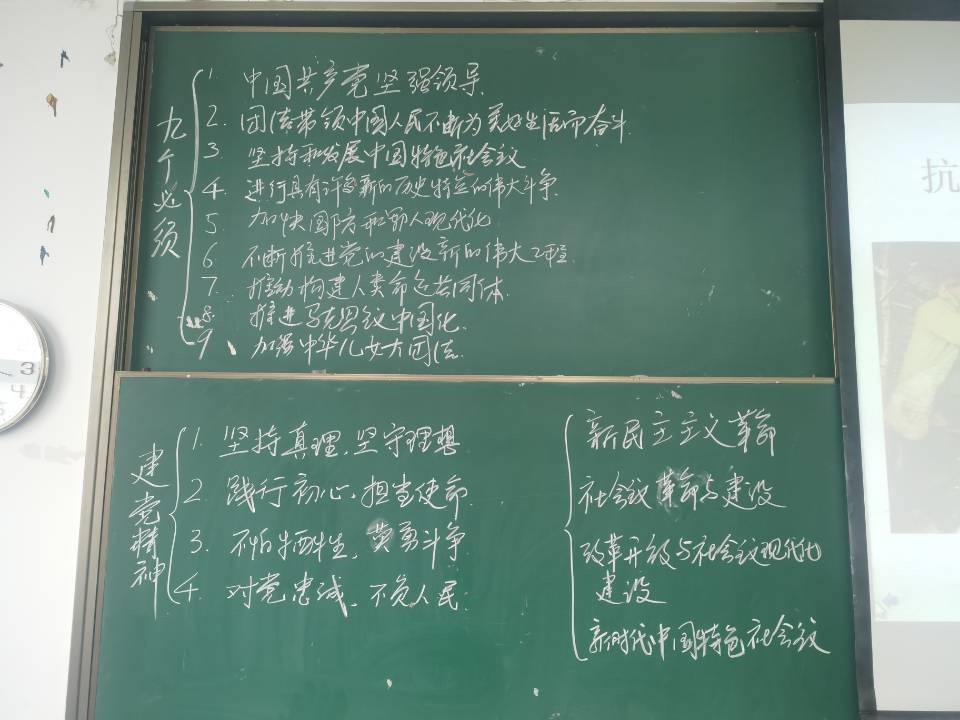 九个必须
1. 中国共产党坚强领导.
2. 团结带领中国人民不断为美好生活而奋斗.
3. 坚持和发展中国特色社会议
4. 进行具有许多新的历史特点的伟大斗争.
5. 加快国防和军队现代化
6 不断推进党的建设新的伟大工程
7 推动构建人类命运共同体.
8. 推进马克思议中国化.
9 加强中华儿女大团结.
建党精神
1. 坚持真理、坚守理想
2. 践行初心、担当使命
3. 不怕牺牲、英勇斗争
4. 对党忠诚、不负人民.
新民主主义革命
社会议革命与建设
改革开放与社会议现代化
建设
新时代中国特色社会议
抗
3
4
5